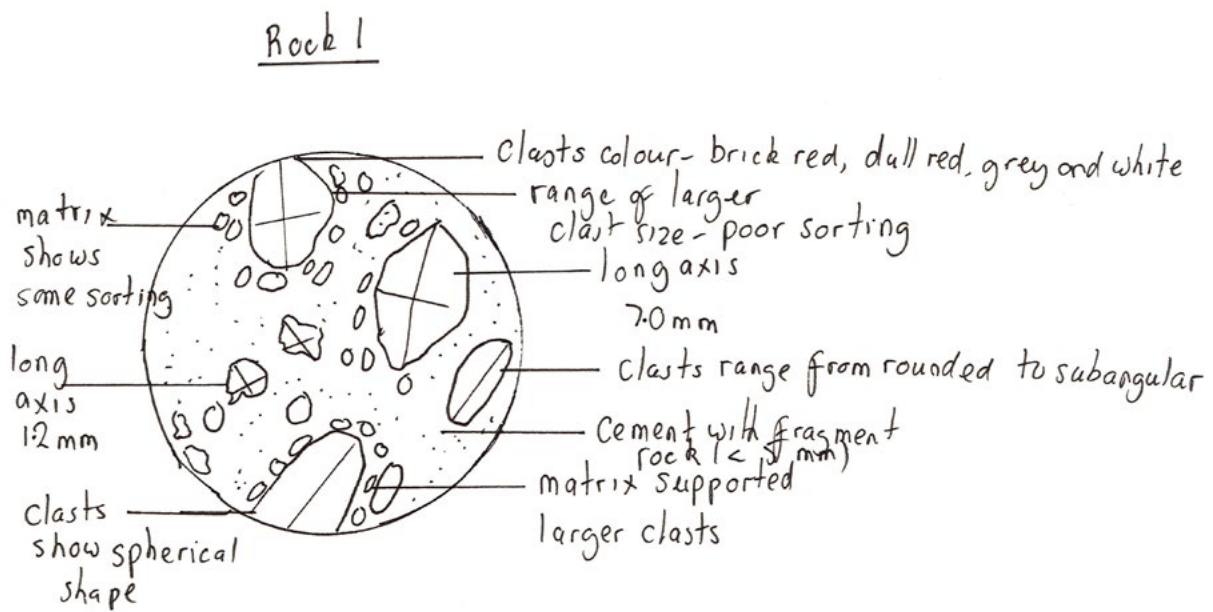 Rock 1
clasts colour - brick red, dull red, grey and white
range of larger
clast size - poor sorting
matrix
shows
some sorting
long axis
7.0 mm
long
axis
1.2 mm
clasts range from rounded to subangular
cement with fragment
rock (<
mm)
matrix supported
larger clasts
clasts
show spherical
shape